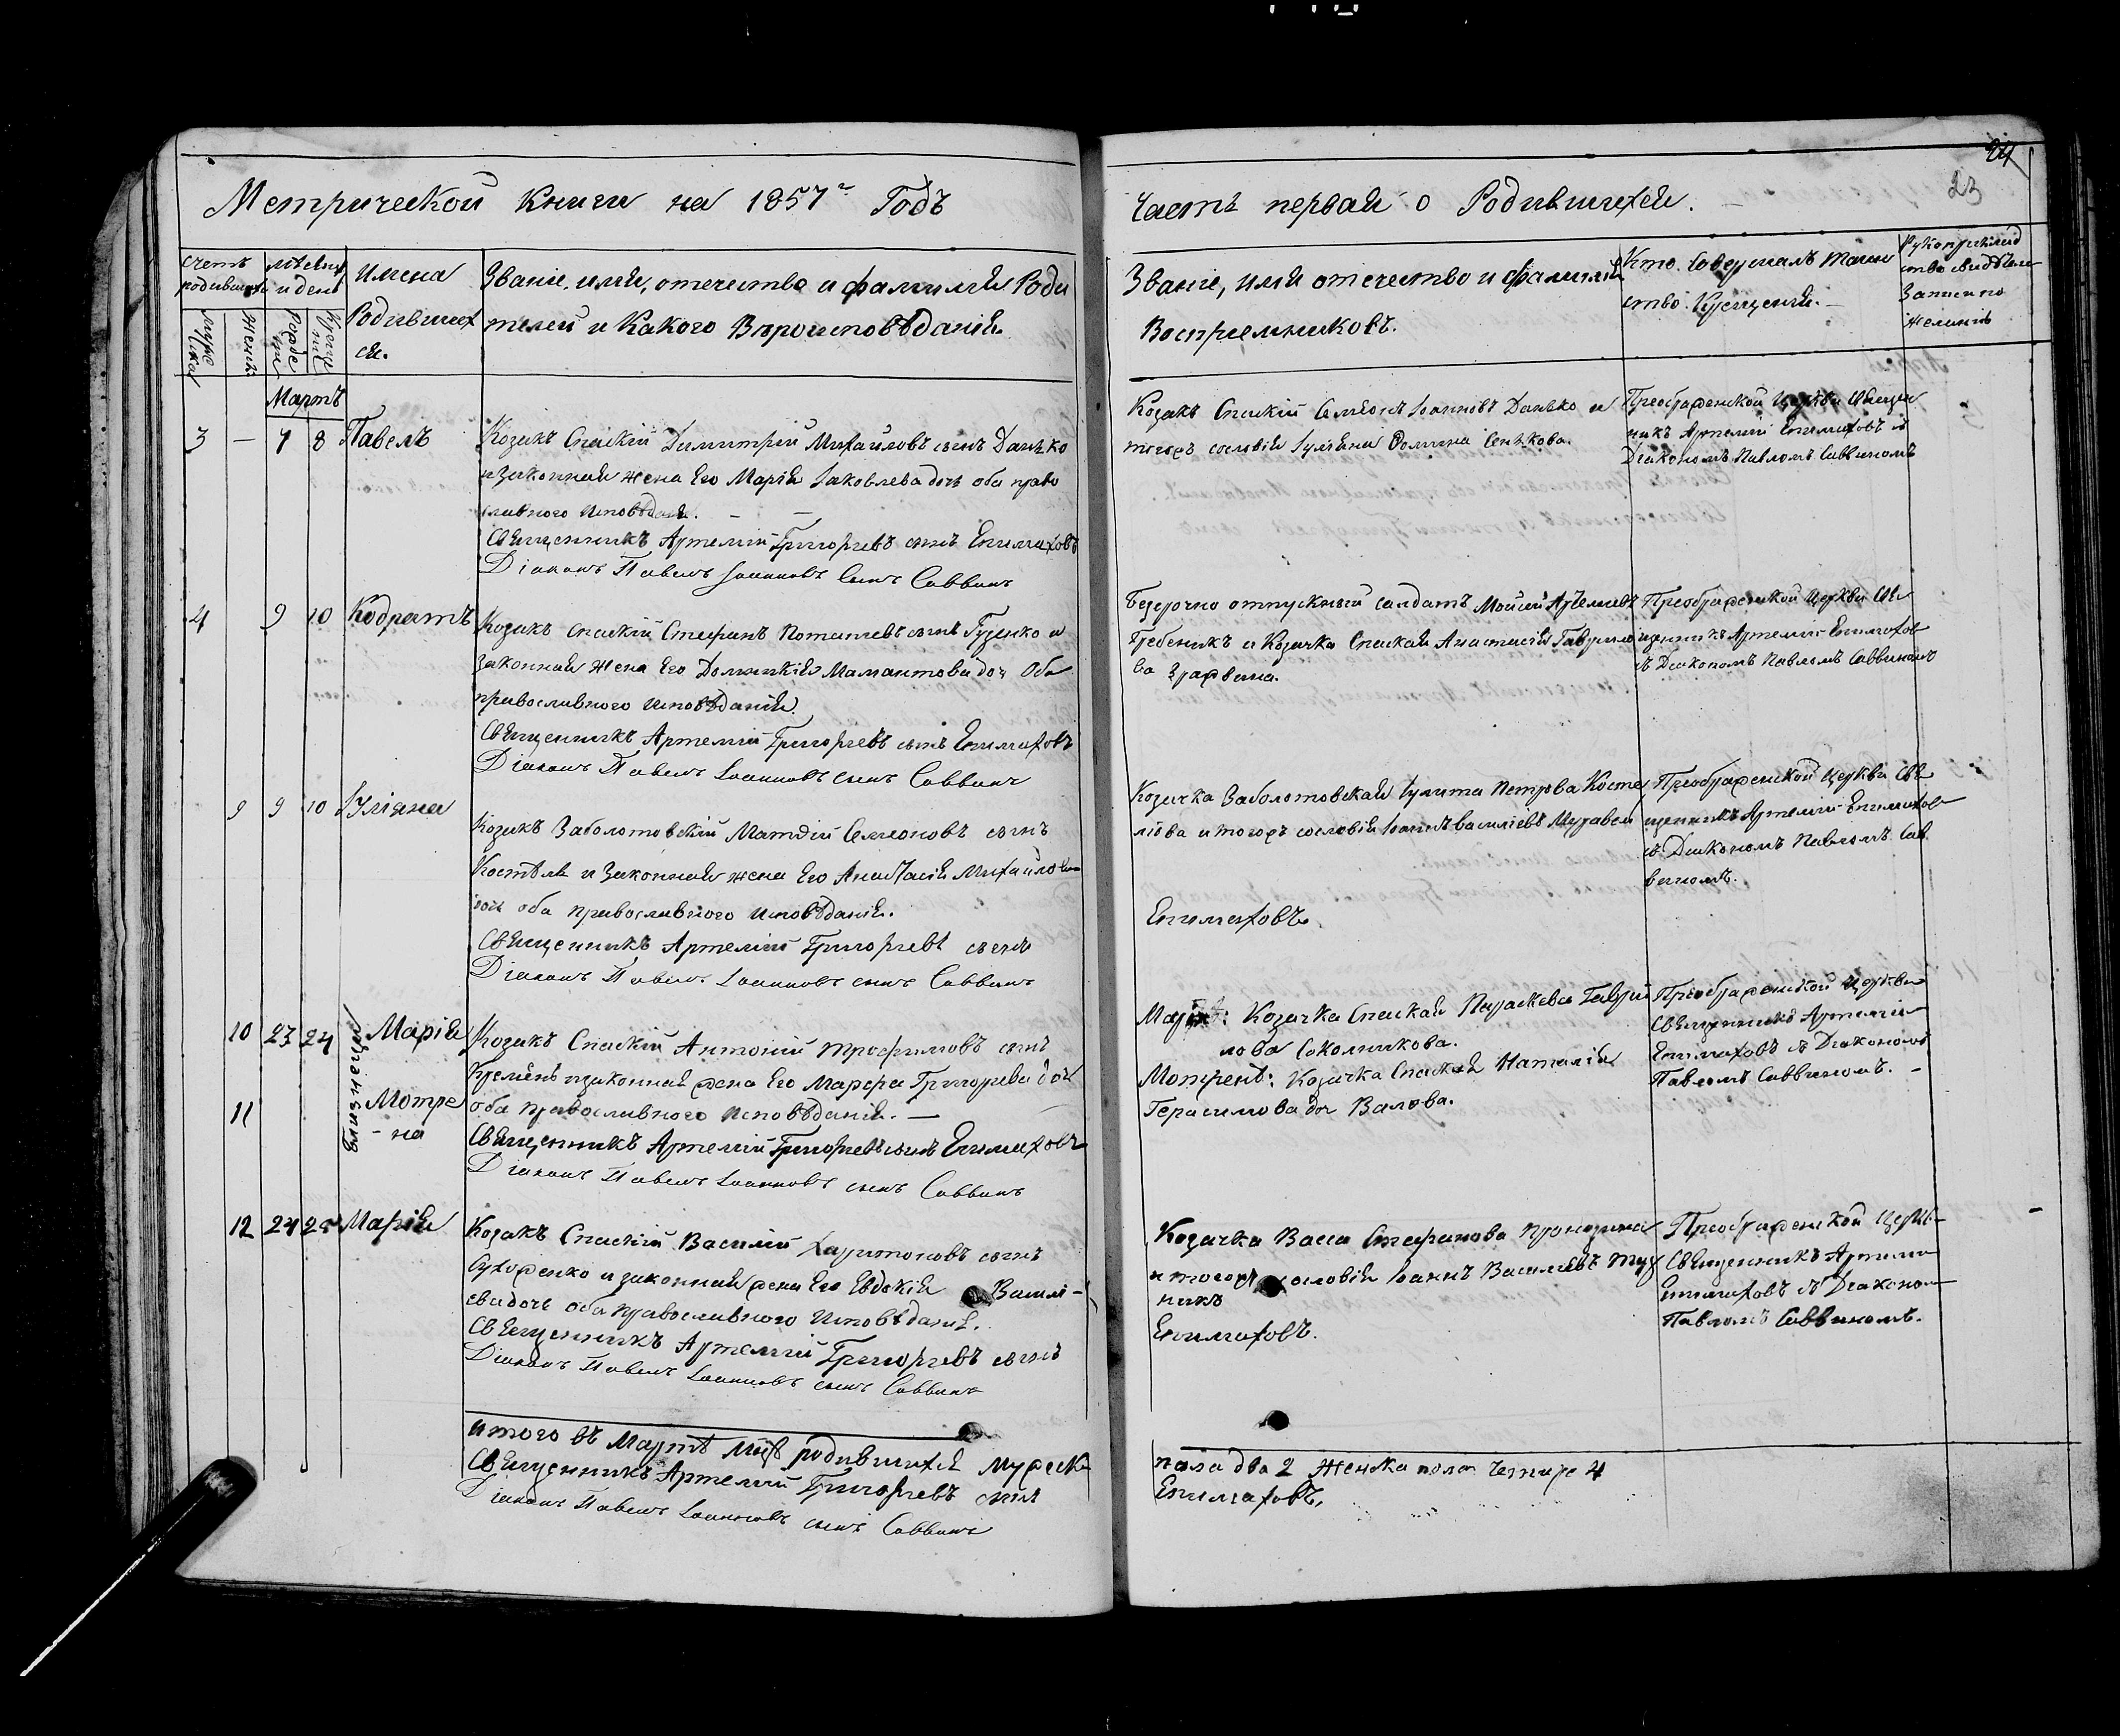 24
23
Метрической Книги на 1857г Годъ
Часть первая о Родившихся.
счетъ родившихся
мѣсяцъ и день
Имена Родившихся.
Званіе, имя, отечество и фамилія Роди
телей и Какого Вѣроисповѣданія.
Званіе, имя отечество и фамилія
Воспріемниковъ.
Кто Совершалъ Таин
ство Крещенія.
Мартъ
3 — 7 8 Павелъ
Козакъ Спаскій Димитрій Михайловъ сынъ Данько
и законная жена Его Марія Іаковлева дочь оба право
славного исповѣданія.
Священникъ Артемій Григорьевъ сынъ Епимаховъ
Діаконъ Павелъ Іоанновъ Сынъ Саввинъ
Козакъ Спаскій Семіонъ Іоанновъ Данько и
тогожъ сословія Іуліяна Сенькова.
Преображенской Церкви Священ
никъ Артемій Епимаховъ съ
Діакономъ Павломъ Саввиномъ
4 9 10 Кодратъ
Козакъ Спаскій Стефанъ Потапіевъ сынъ Гузенко и
законная жена Его Домникія Мамантова доч Оба
православного исповѣданія.
Священникъ Артемій Григорьевъ сынъ Епимаховъ
Діаконъ Павелъ Іоанновъ сынъ Саввинъ
Безсрочно отпускный салдатъ Мойсей
Гребеникъ и Козачка Спаская Анастасія Гаврило
ва
Преображенской Церкви Свя
щенникъ Артемій Епимахов
съ Діакономъ Павломъ Саввиномъ
9 9 10 Іуліяна
Козакъ Заболотовскій Матѳій Семеоновъ сынъ
Костѣля и Законная жена Его Анастасія Михайлова
дочь оба православного исповѣданія.
Священникъ Артемій Григорьевъ сынъ
Діаконъ Павелъ Іоанновъ сынъ Саввинъ
Козачка Заболотовская Іулита Петрова Косте
лова и тогожъ сословія Іоаннъ Василіевъ Муравей
Епимаховъ.
Преображенской Церкви Свя
щенникъ Артемій Епимахов
съ Діакономъ Павломъ Сав
виномъ.
10 23 24 Марія
11 Мотре
-на
близнецы
Козакъ Спаскій Антоній Трофимовъ сынъ
Кремѣнь и законная жена Его Марфа Григорьева доч
оба православного исповѣданія. —
Священникъ Артемій Григорьевъ сынъ Епимаховъ
Діаконъ Павелъ Іоанновъ сынъ Саввинъ
Козачка Спаская Параскева Гаври
лова Соколникова.
Мотренѣ: Козачка Спаская Наталія
Герасимова доч Валова.
Преображенской Церкви
Священникъ Артемій
Епимаховъ съ Діакономъ
Павломъ Саввиномъ. -
12 24 25 Марія
Козакъ Спаскій Василій Харитоновъ сынъ
и законная жена Его Евдокія Васил-
ева дочь оба православного исповѣданія.
Священникъ Артемій Григорьевъ сынъ
Діаконъ Павелъ Іоанновъ сынъ Саввинъ
Козачка Васса Стефанова
и тогожъ сословія Іоаннъ Василіевъ
Епимаховъ.
Преображенской Церкв
Священникъ Артемій
Епимаховъ съ Діаконом
Павломъ Саввиномъ.
итого въ Мартѣ родившихся Мужеска
Священникъ Артемій Григорьевъ сынъ
Діаконъ Павелъ Іоанновъ сынъ Саввинъ
пола два 2 Женска пола четыре 4
Епимаховъ.